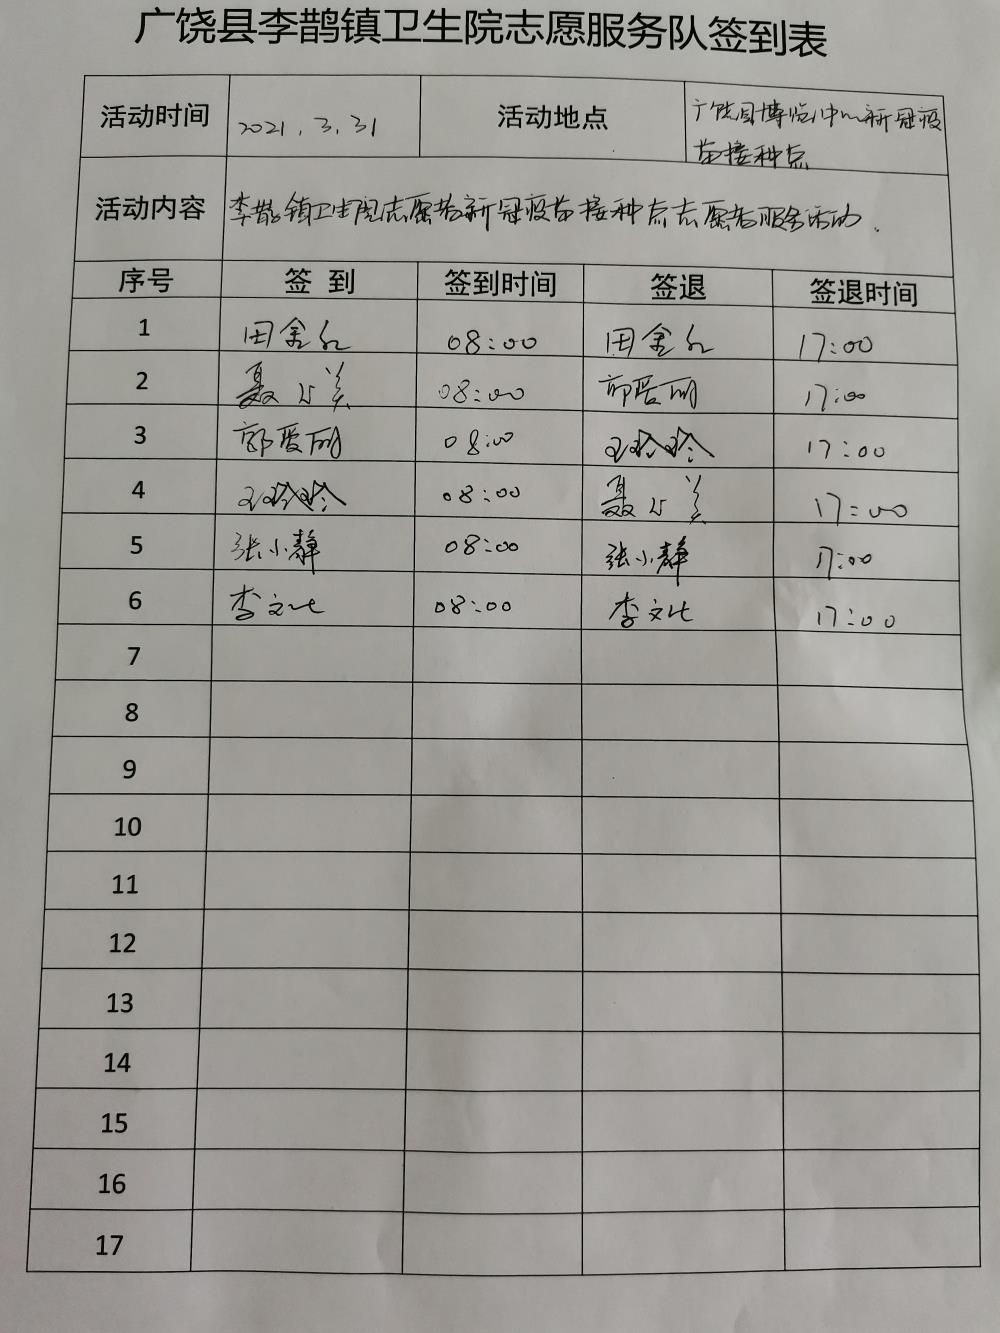 广饶县李鹊镇卫生院志愿服务队签到表
活动时间 2021.3.31 活动地点 广饶县博览中心新冠疫
苗接种点
活动内容 李鹊镇卫生院志愿者新冠疫苗接种点志愿者服务活动.
序号 签 到 签到时间 签退 签退时间
1 田金 08:00 田金 17:00
2 聂 08:00 郭爱丽 17:00
3 郭爱丽 08:00 王玲玲 17:00
4 王玲玲 08:00 聂 17:00
5 张小静 08:00 张小静 17:00
6 李文 08:00 李文 17:00
7
8
9
10
11
12
13
14
15
16
17